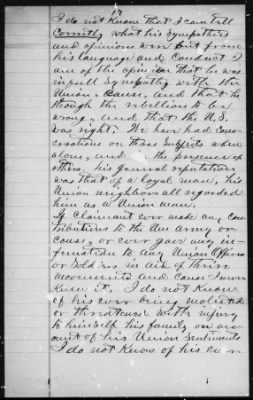 17
I do not know that I can tell
Correctly what his Sympathies
and opinions were but from
his language and Conduct I
am of the opinion that he was
in full Sympathy with the
Union Cause, and that he
though the rebellion to be
wrong, and that the U.S.
was right. We have had conv-
ersations on those Subjects when
alone, and in the presence of
others. his general reputation
was that of a loyal man, his
Union neighbors all regarded
him as a Union man.
If Claimant ever made any con
tributions to the Union army or
cause, or ever gave any in-
formation to any Union officers
or Soldiers in aid of their
movements and Cause I never
knew it. I do not know
of his ever being molested
or threatened with injury
to himself his family on acc
ount of his Union Sentiments
I do not know of his ever